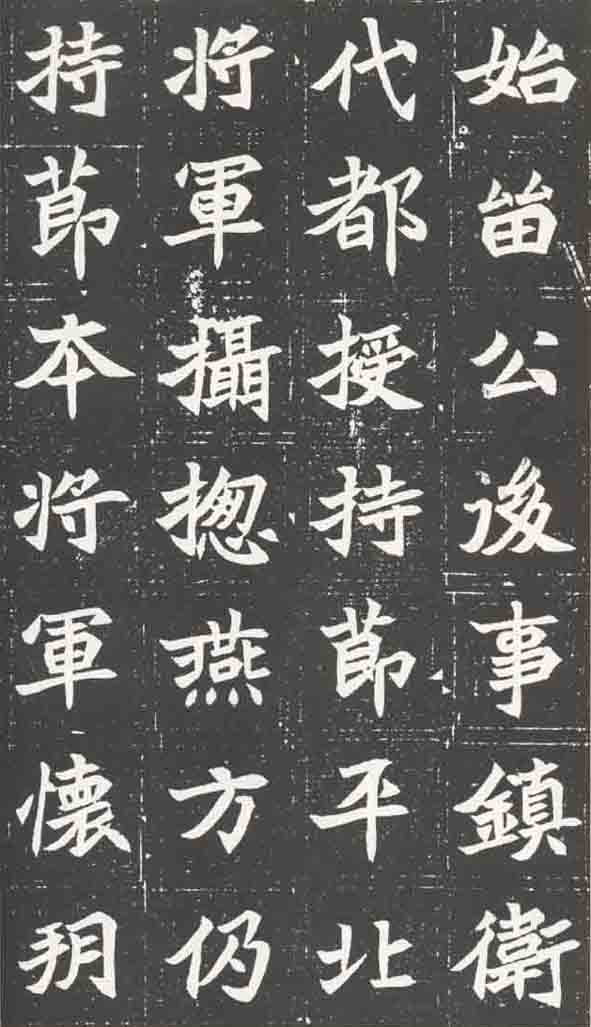 始留公後事鎮衛
代都授持莭平北
将軍攝揔燕方仍
持莭本将軍懷朔